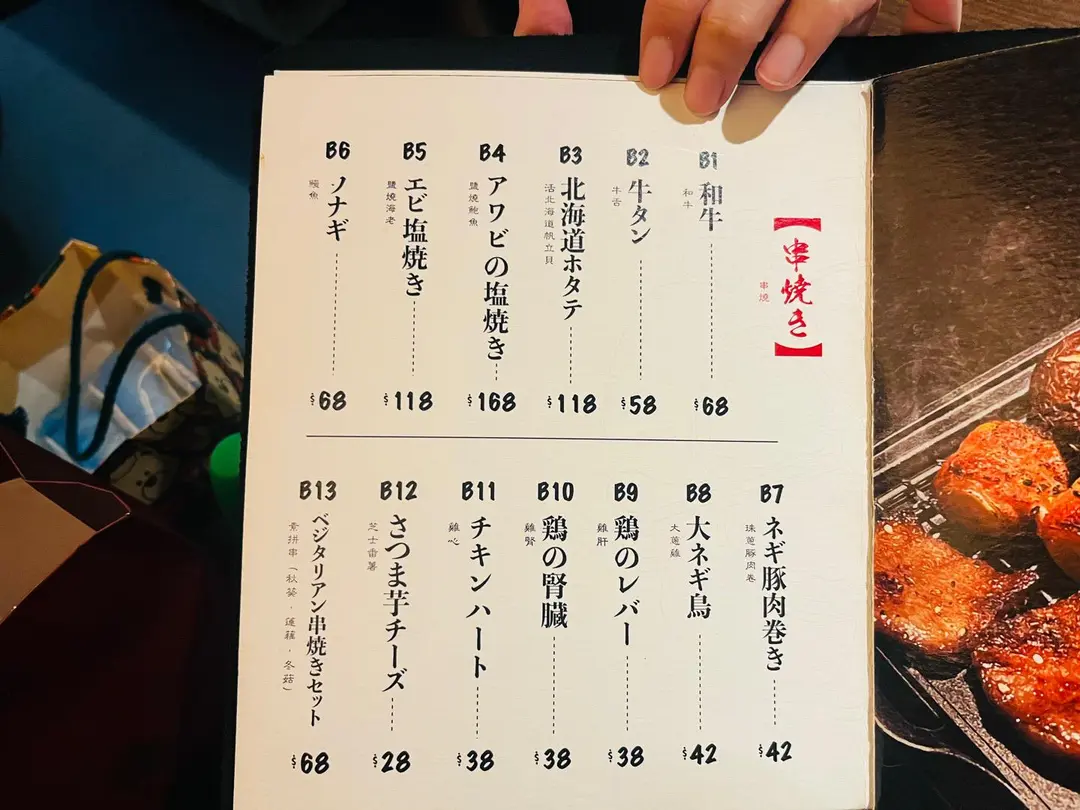 【串焼き】
串燒
B1
和牛
和牛
$68
B2
牛タン
牛舌
$58
B3
北海道ホタテ
活北海道帆立貝
$118
B4
アワビの塩焼き
鹽燒鮑魚
$168
B5
エビ塩焼き
鹽燒海老
$118
B6
ノナギ
鰻魚
$68
B7
ネギ豚肉巻き
珠蔥豚肉卷
$42
B8
大ネギ鳥
大蔥雞
$42
B9
鶏のレバー
雞肝
$38
B10
鶏の腎臓
雞腎
$38
B11
チキンハート
雞心
$38
B12
さつま芋チーズ
芝士番薯
$28
B13
ベジタリアン串焼きセット
素拼串「秋葵．蓮藕．冬菇」
$68